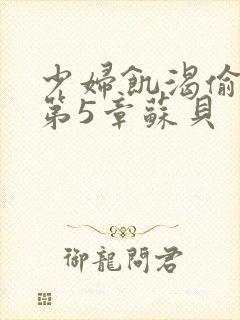 少婦飢渴偷
第5章蘇貝
御龍問君